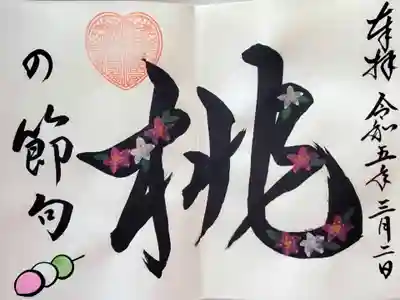 奉拝 令和五年 三月二日
桃
の節句